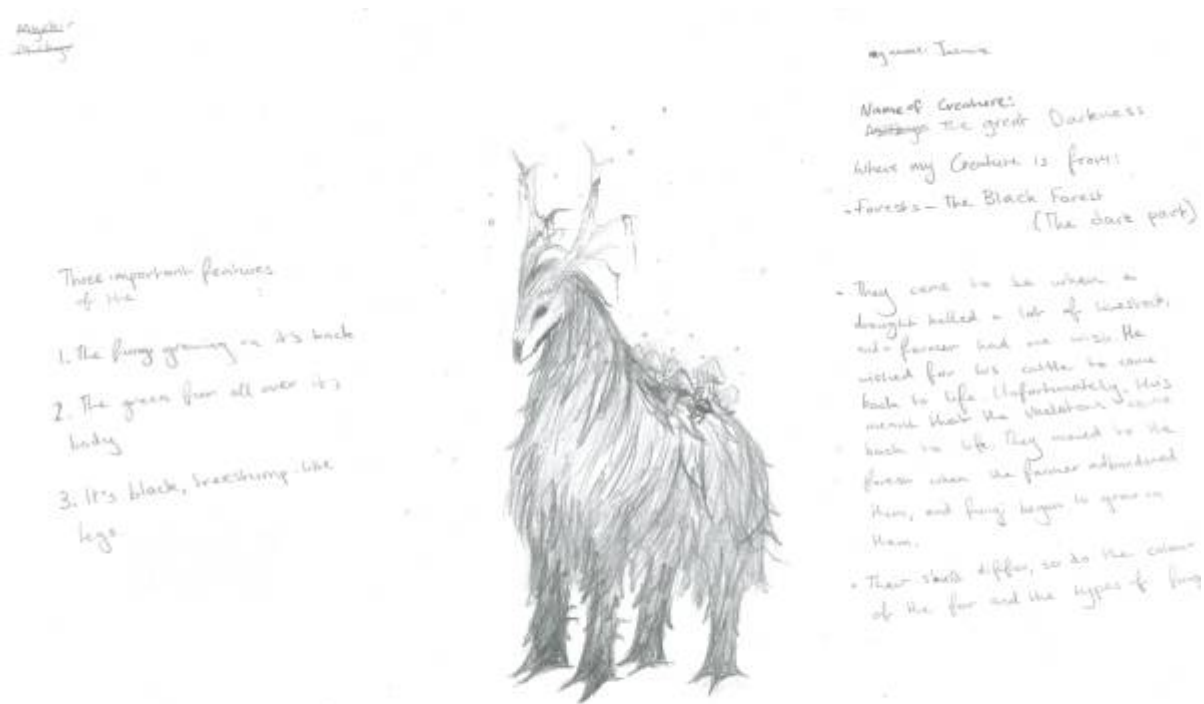 Three important features
of the
1. The fungi growing on it's back
2. The green fur all over it's
body
3. It's black, treestump-like
legs
my name:
Name of Creature:
The great Darkness
Where my Creature is from:
- Forests - The Black Forest
(The dark part)
- They came to be when a
drought killed a lot of livestock,
farmer had one wish. He
wished for his cattle to come
back to life. Unfortunately, this
meant that the skeletons came
back to life. They moved to the
forest when the farmer abandoned
them, and fungi began to grow on
them.
- Their skulls differ, so do the colour
of the fur and the types of fungi